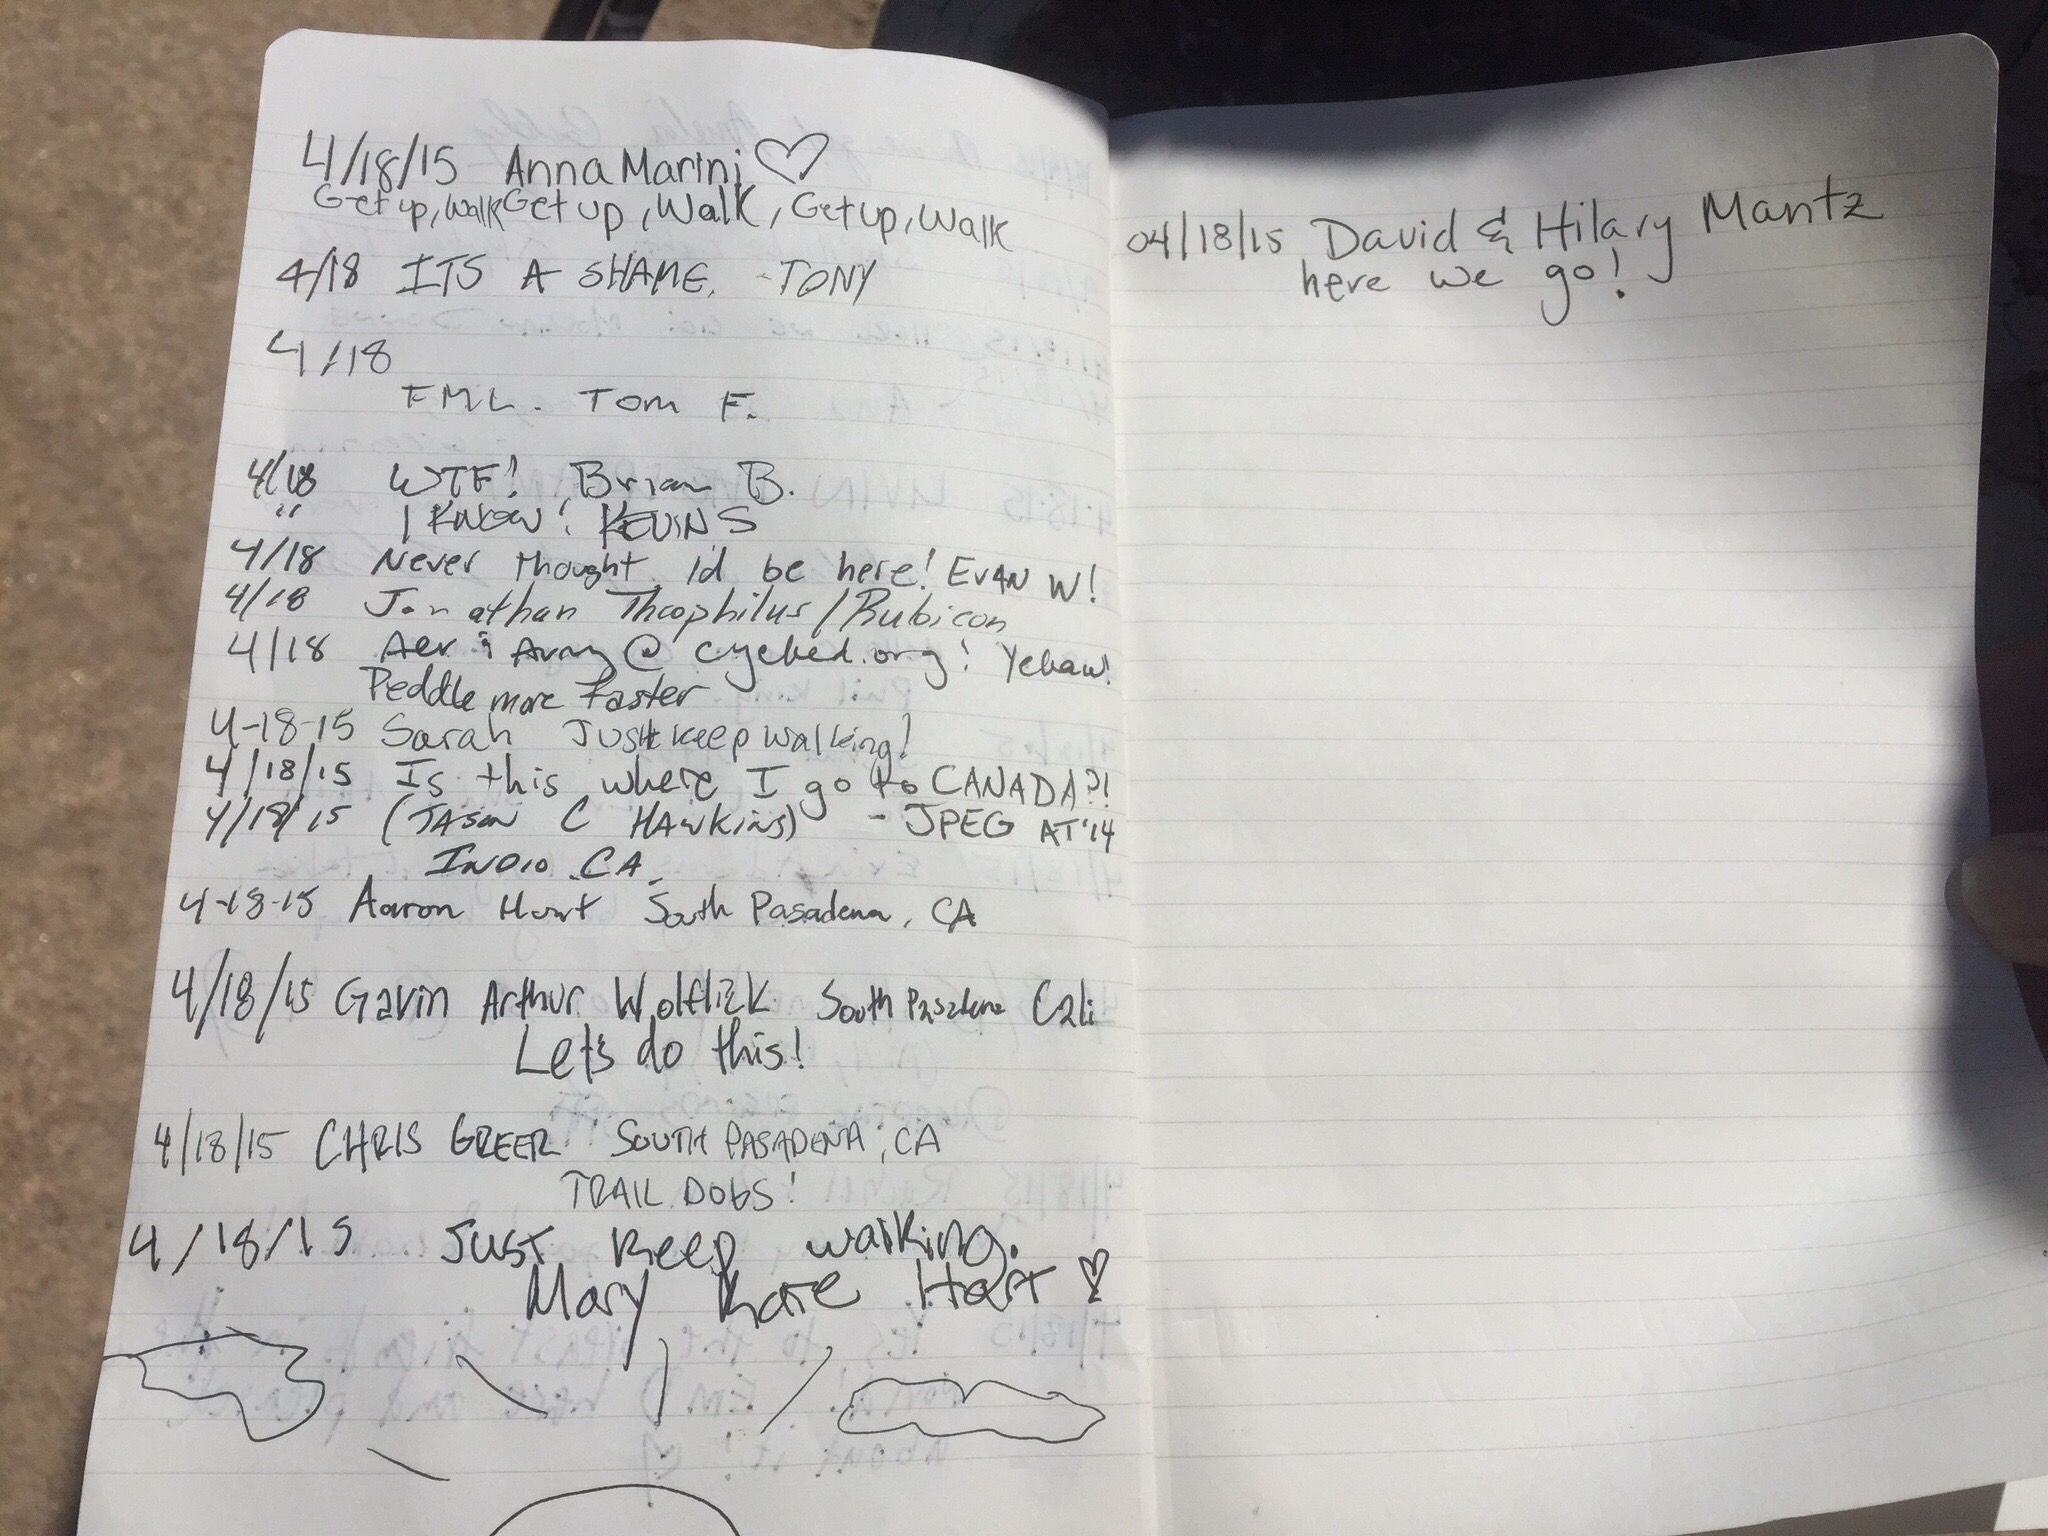 4/18/15 Anna Marini ♡
Get up, Walk Get up, Walk, Get up, Walk
4/18 ITS A SHAME. - TONY
4/18
FML. Tom F.
4/18 WTF! Brian B.
" I KNOW! KEVIN S
4/18 Never thought I'd be here! EVAN W!
4/18 Jonathan Theophilus/Rubicon
4/18 Aer & @ .org! Yehaw!
Peddle more Faster
4-18-15 Sarah Just keep walking!
4/18/15 Is this where I go to CANADA?!
4/18/15 (JASON C HAWKINS) - JPEG AT '14
INDIO CA.
4-18-15 Aaron South Pasadena, CA
4/18/15 Gavin Arthur South Pasadena Cali
Let's do this!
4/18/15 CHRIS GREER SOUTH PASADENA, CA
TRAIL DOGS!
4/18/15 Just keep walking.
Mary Kate Hart ♡
04/18/15 David & Hilary Mantz
here we go!